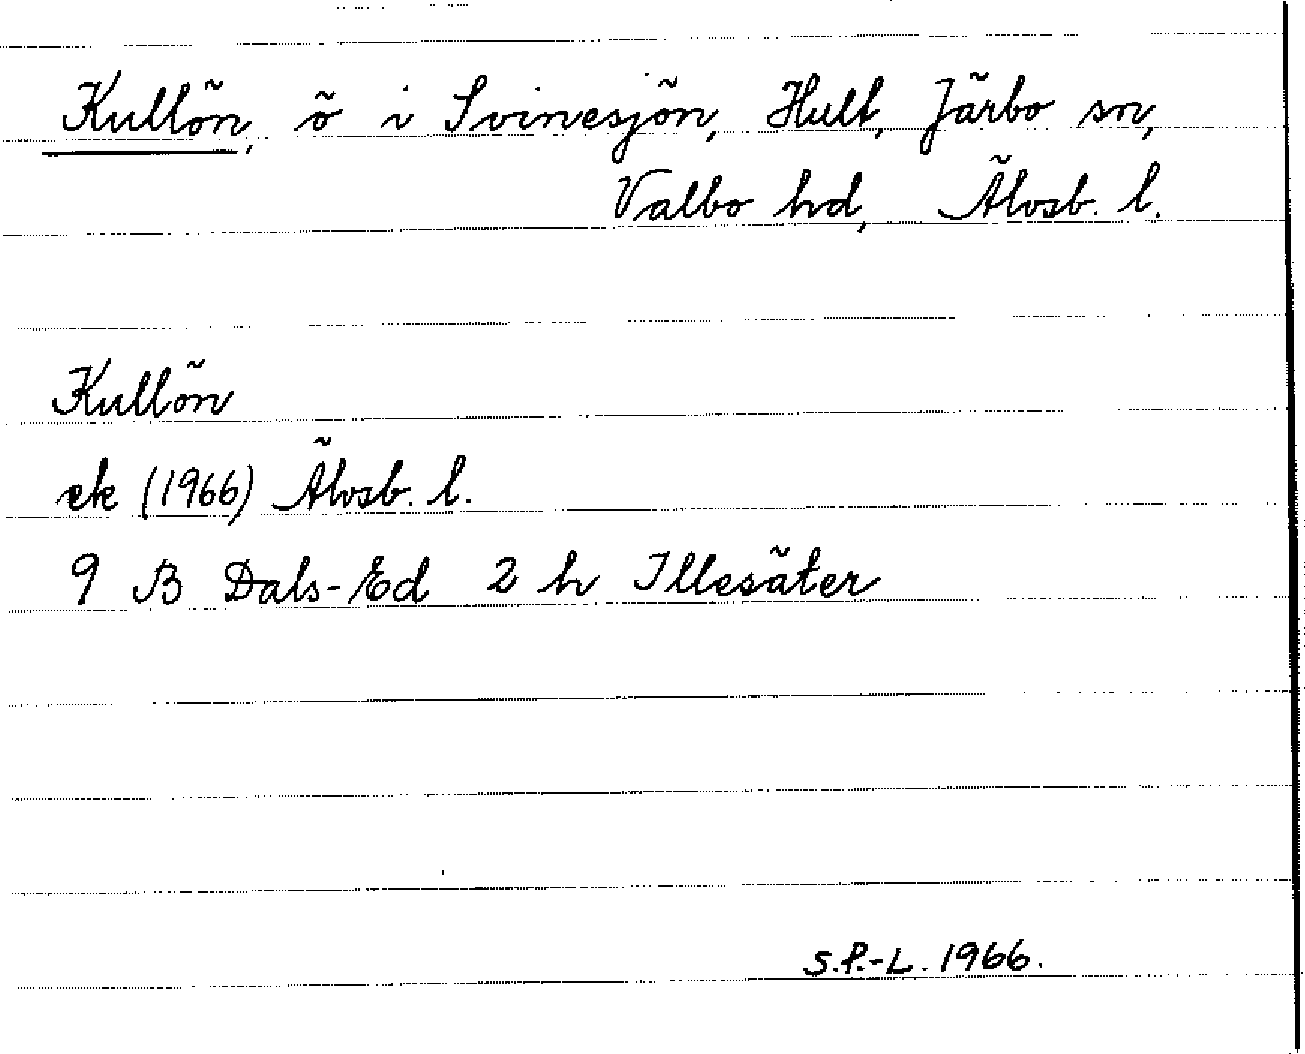 Kullön, ö i Svinesjön, Hult, Järbo sn,
Valbo hd, Älvsb. l.
Kullön
ek (1966) Älvsb. l.
9 B Dals-Ed 2 h Illesäter
S.P.-L. 1966.